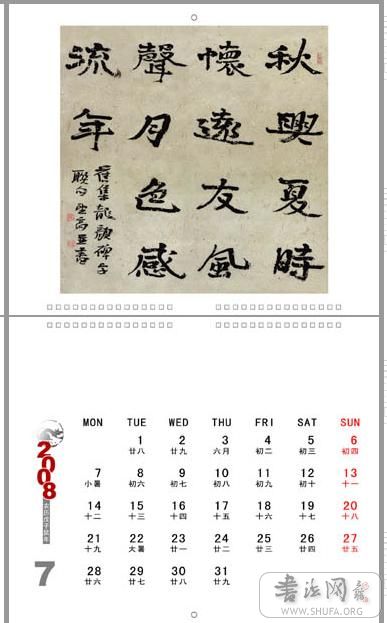 秋興夏時
懷遠友風
聲月色感
流年
舊集龍顏碑字
聯句
MON TUE WED THU FRI SAT SUN
1 2 3 4 5 6
廿八 廿九 六月 初二 初三 初四
7 8 9 10 11 12 13
小暑 初六 初七 初八 初九 初十 十一
14 15 16 17 18 19 20
十二 十三 十四 十五 十六 十七 十八
21 22 23 24 25 26 27
十九 大暑 廿一 廿二 廿三 廿四 廿五
28 29 30 31
廿六 廿七 廿八 廿九
2008
农历戊子鼠年
7
书法网
WWW.SHUFA.ORG